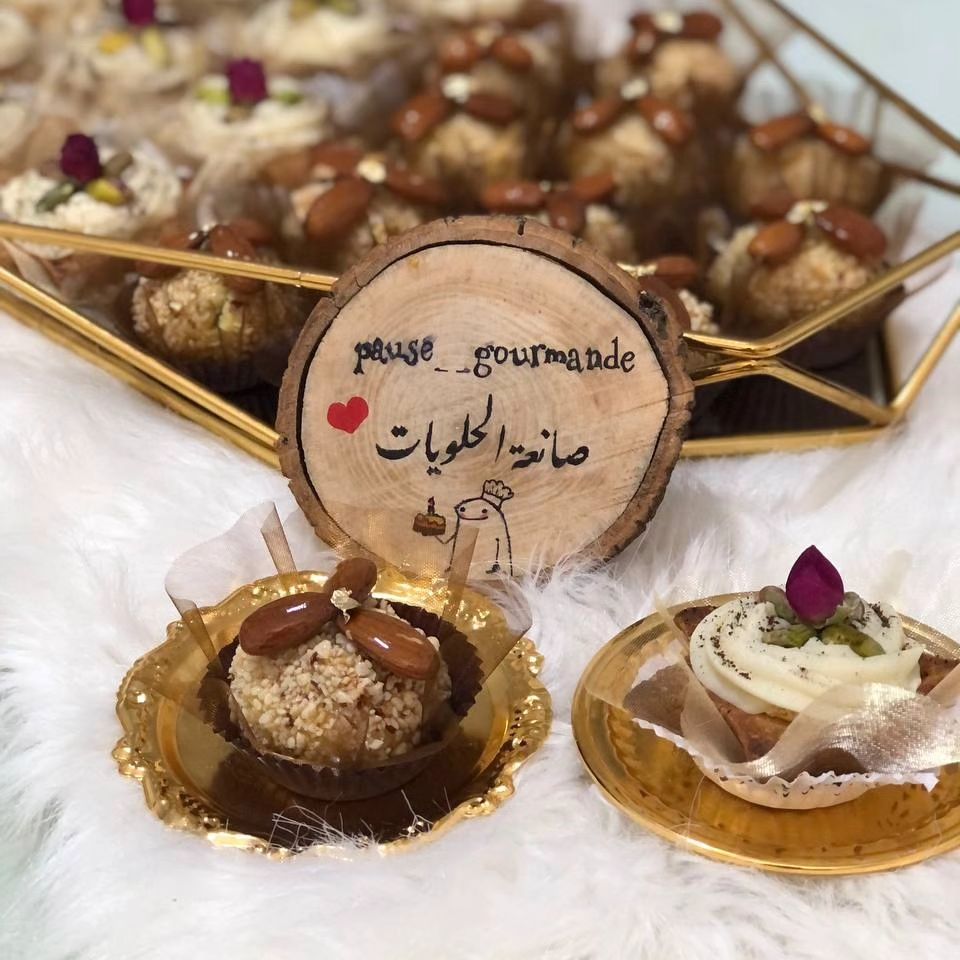 pause__gourmande
صانعة الحلويات